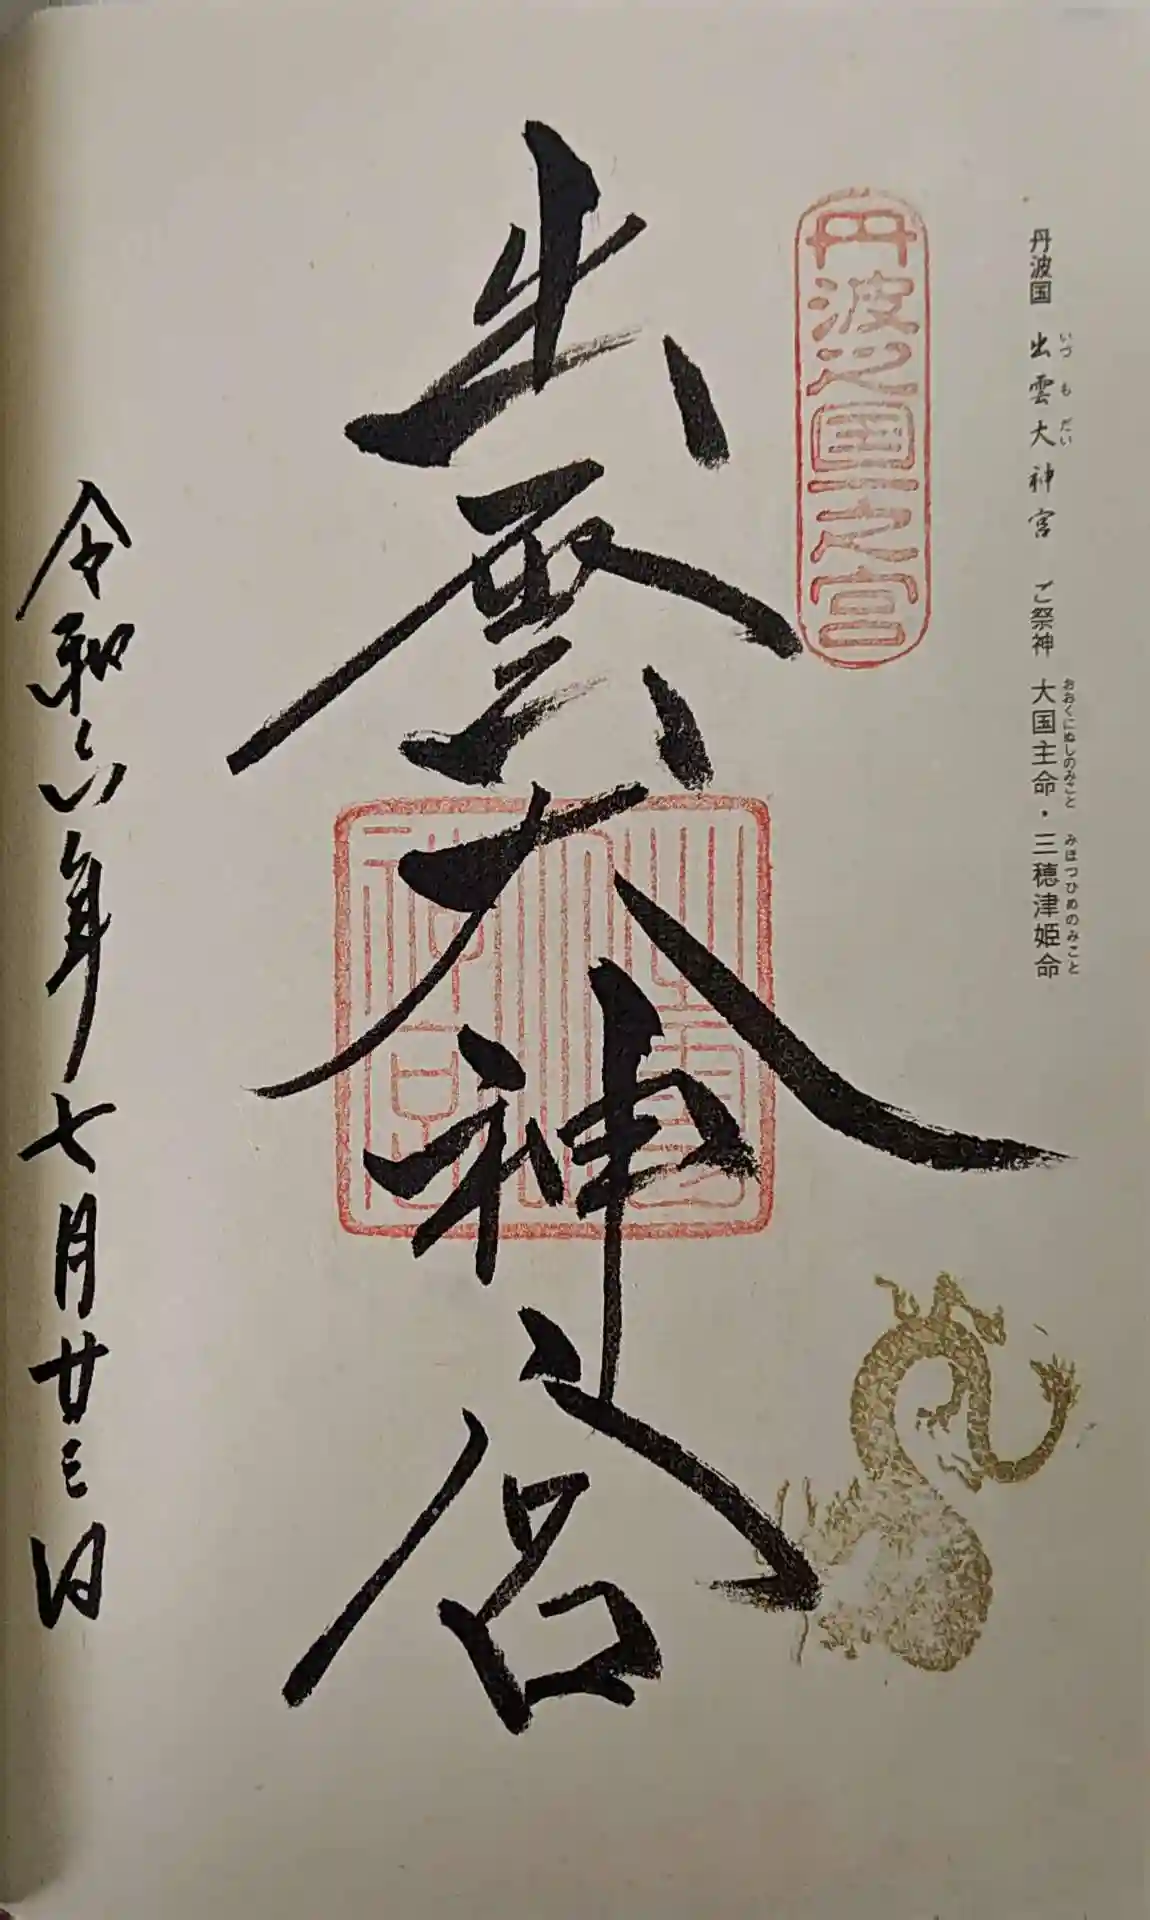 丹波国 出雲大神宮 ご祭神 大国主命・三穂津姫命
いづもだい
おおくにぬしのみこと みほつひめのみこと
丹波之国一之宮
出雲大神宮
令和六年七月廿三日